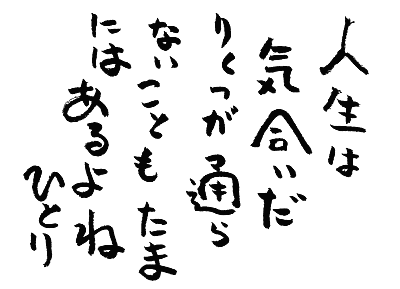 人生は
気合いだ
りくつが通ら
ないこともたま
には
あるよね
ひとり